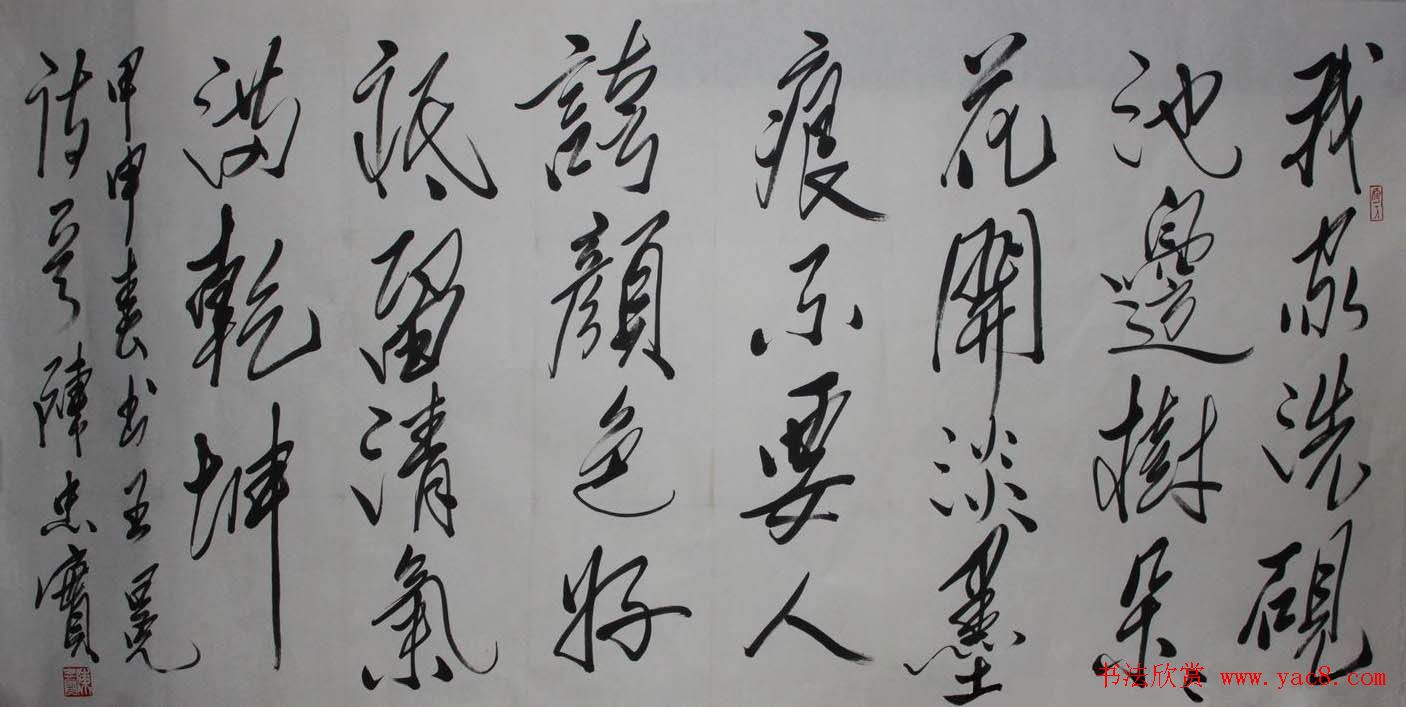 我家洗硯
池邊樹朵々
花開淡墨
痕不要人
誇顏色好
祗留清氣
滿乾坤
甲申春書王冕
詩一首陳忠實
书法欣赏 www.yac8.com